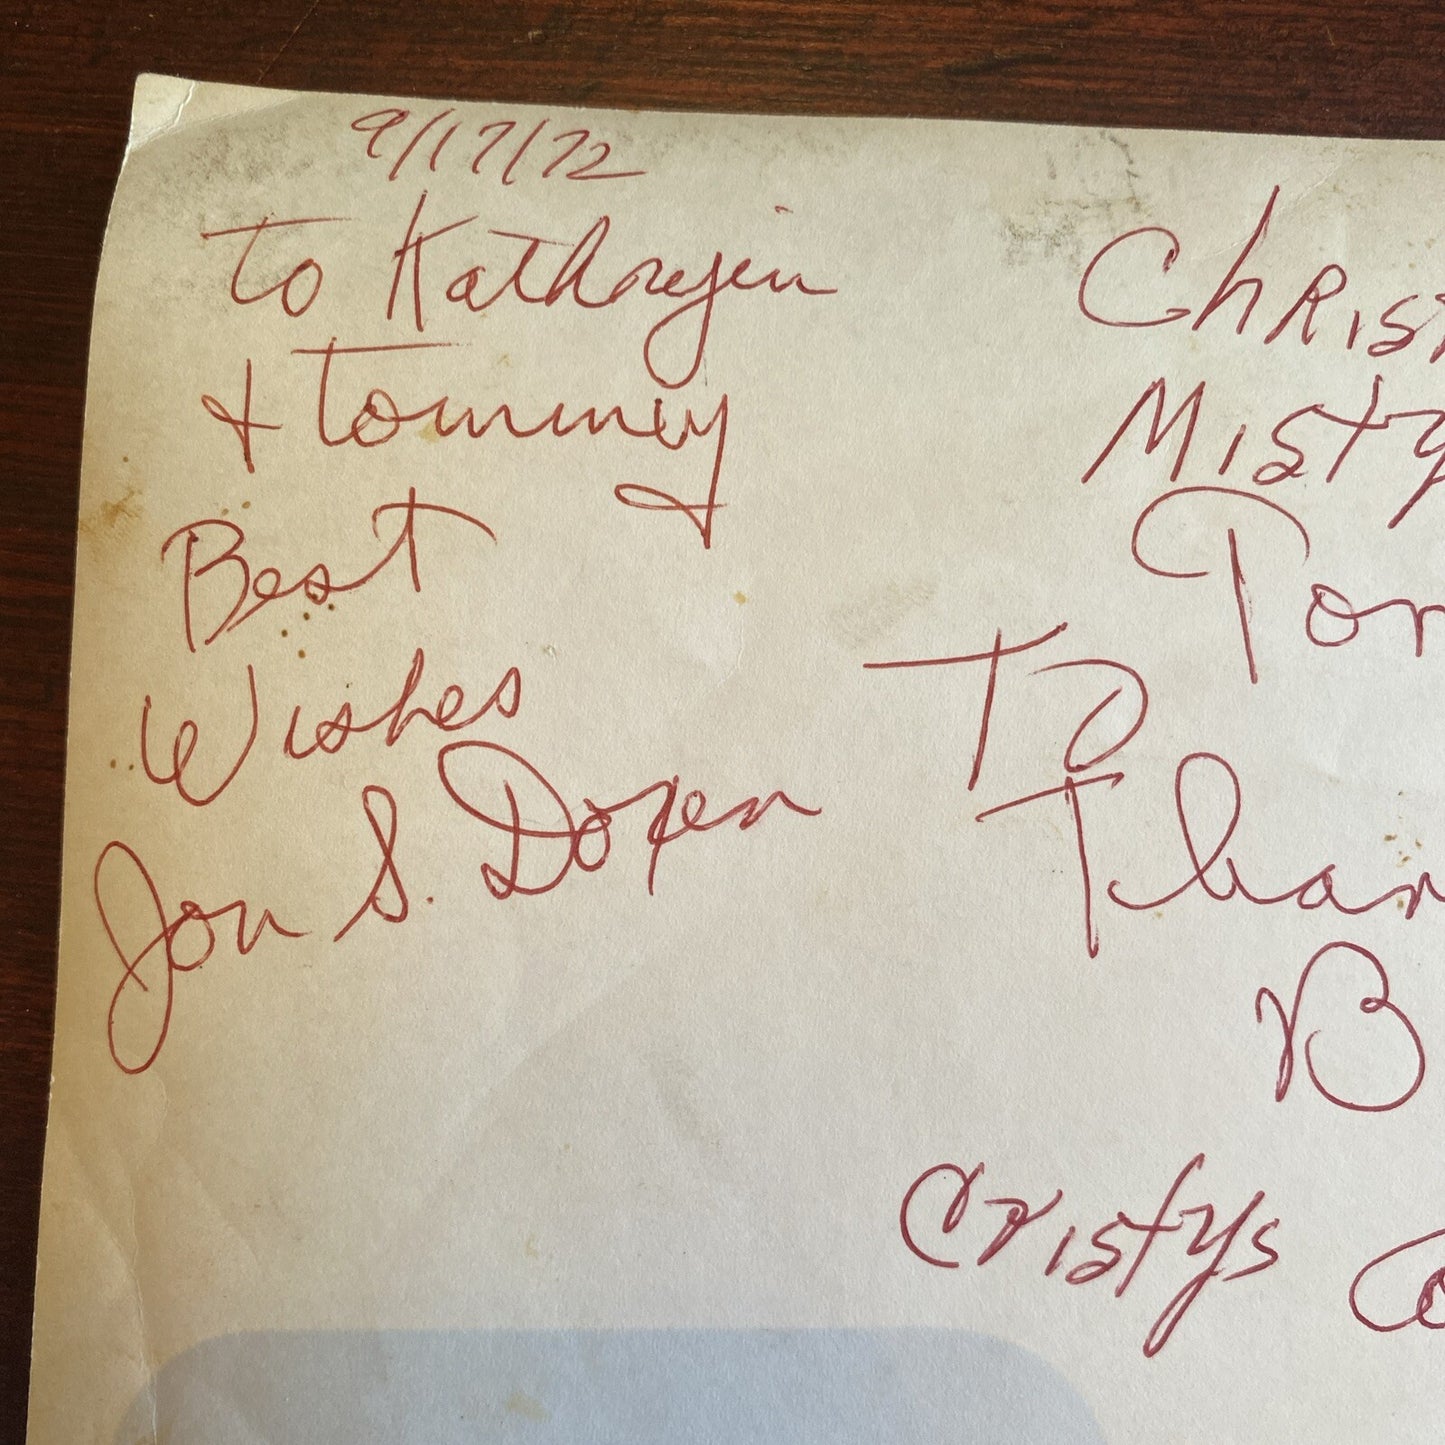 9/17/72
To Kathryn
& Tommy
Best
Wishes
Jon S. Doxen
Christ
Misty
Tom
To
Than
B
Cristys Co